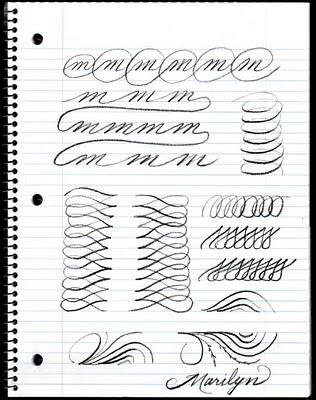 m m m m m m
m m m
m m m m m
m m m
Marilyn